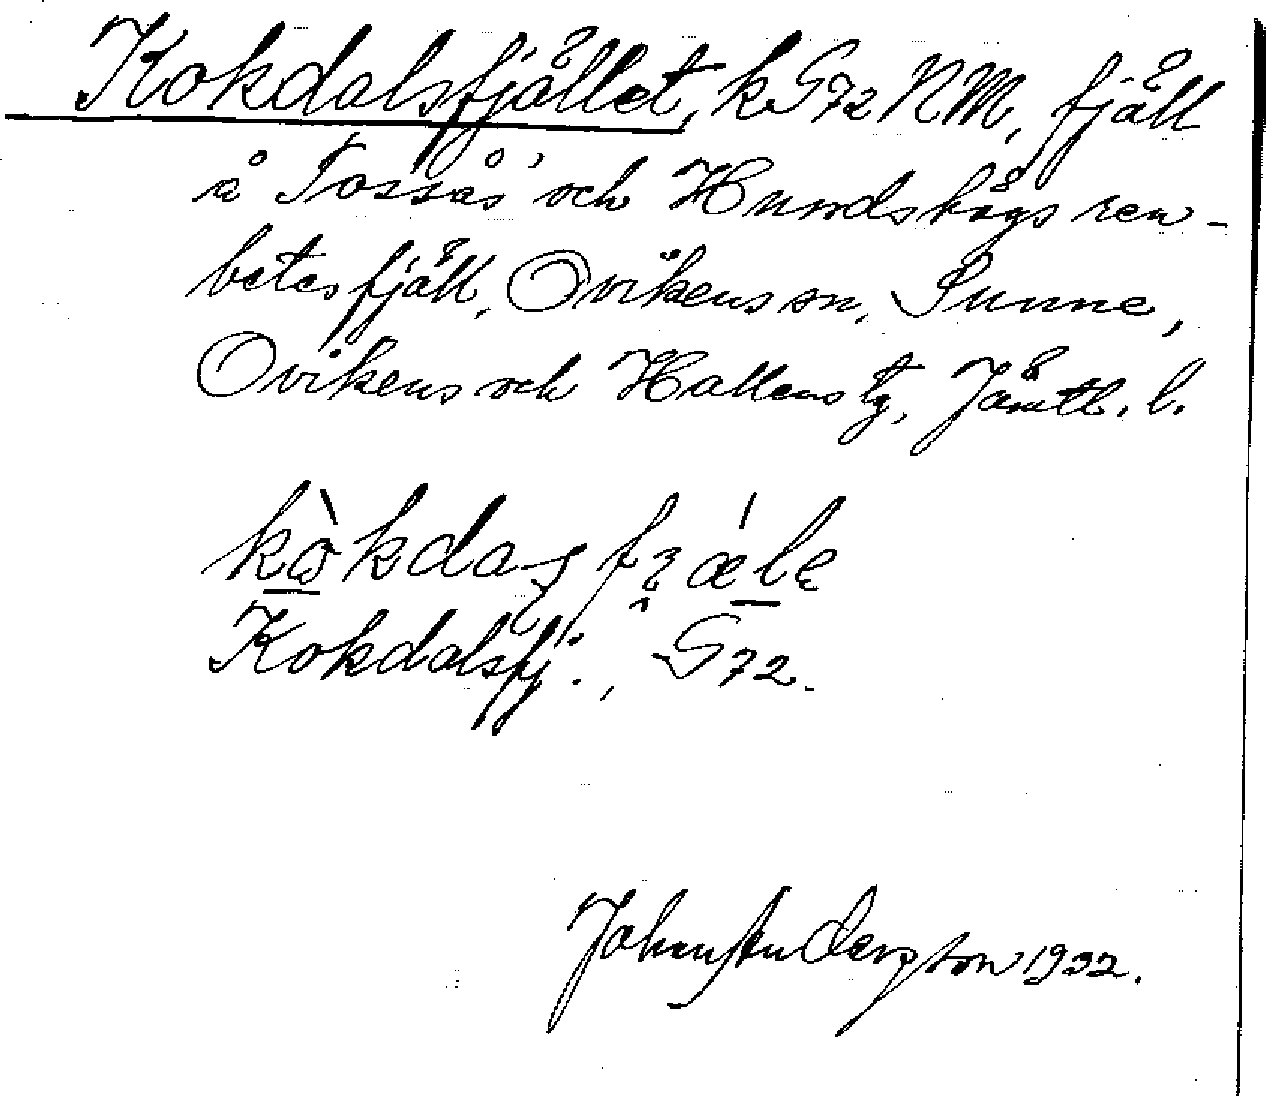 Kokdalsfjället, k S72 NM, fjäll
å Tossås och Hundshögs ren-
betesfjäll, Ovikens sn, Sunne,
Ovikens och Hallens tg, Jämtl. l.
Kokdalsfj., S72.
1932.